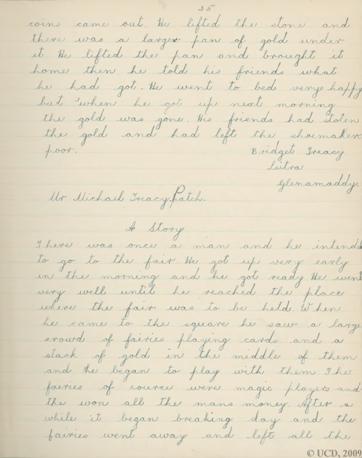 25
coin came out. He lifted the stone and
there was a larger pan of gold under
it. He lifted the pan and brought it
home then he told his friends what
he had got. He went to bed very happy
but when he got up next morning
the gold was gone. His friends had stolen
the gold and had left the shoemaker
poor.
Bridget Treacy
Leitra
Glenamaddy.
Mr Michael Treacy, Patch.
A Story
There was once a man and he intends
to go to the fair. He got up very early
in the morning and he got ready. He went
very well until he reached the place
where the fair was to be held. When
he came to the square he saw a large
crowd of fairies playing cards and a
stack of gold in the middle of them
and he began to play with them. The
fairies of course were magic players and
the won all the mans money. After a
while it began breaking day and the
fairies went away and left all the
© UCD, 2009